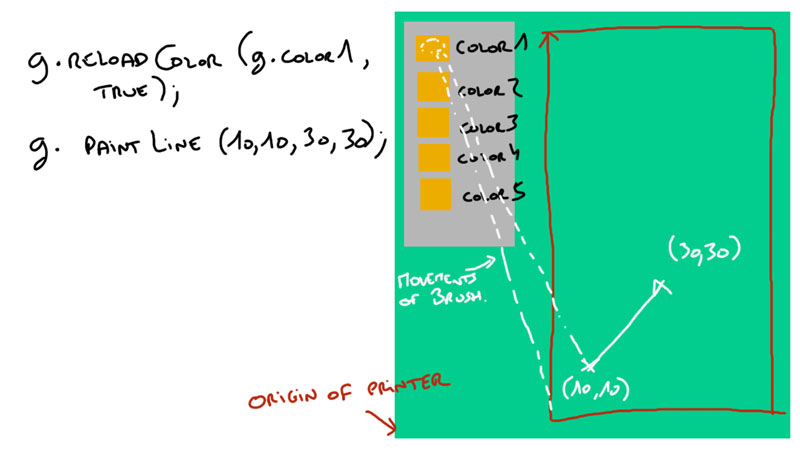 g. RELOAD COLOR (g.COLOR1,
TRUE);
g. PAINT LINE (10,10,30,30);
COLOR1
COLOR2
COLOR3
COLOR4
COLOR5
(30,30)
MOVEMENTS
OF BRUSH.
(10,10)
ORIGIN OF PRINTER